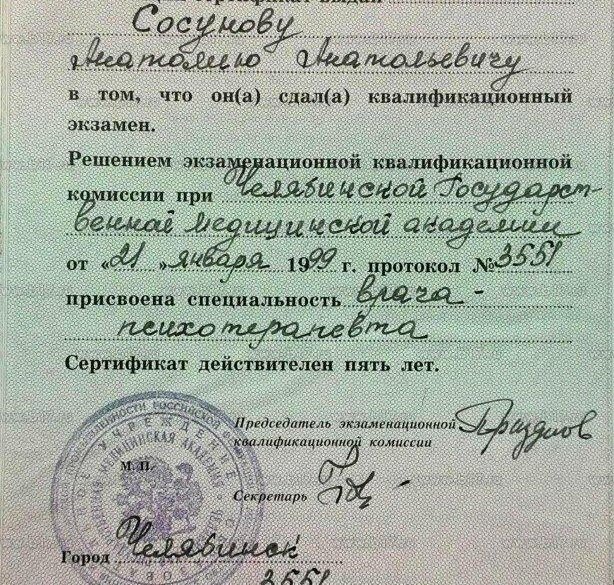 сертификат выдан
Сосунову
Анатолию Анатольевичу
в том, что он(а) сдал(а) квалификационный
экзамен.
Решением экзаменационной квалификационной
комиссии при Челябинской Государст-
венной медицинской академии
от «21» января 1999 г. протокол № 3551
присвоена специальность врача-
психотерапевта
Сертификат действителен пять лет.
Председатель экзаменационной
квалификационной комиссии
М. П.
Секретарь
Город Челябинск
3551